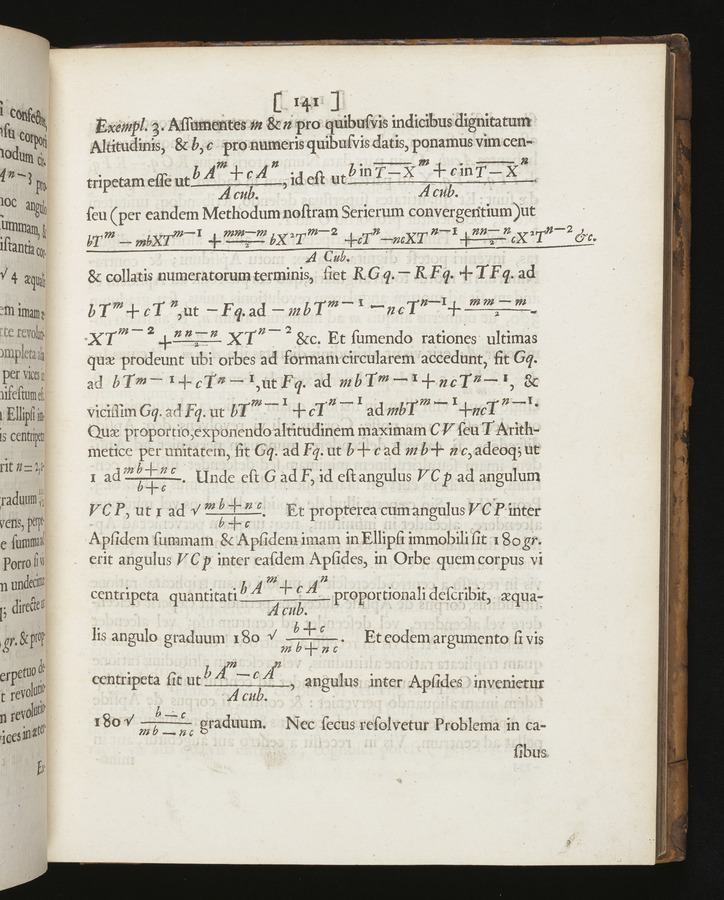 [ 141 ]
Exempl. 3. Aſſumentes m & n pro quibuſvis indicibus dignitatum
Altitudinis, & b, c pro numeris quibuſvis datis, ponamus vim cen-
tripetam eſſe ut (b A^m + c A^n)/(A cub.), id eſt ut (b in T − X^m + c in T − X^n)/(A cub.)
ſeu (per eandem Methodum noſtram Serierum convergentium) ut
(bT^m − mbXT^{m−1} + (mm−m)/2 bX²T^{m−2} + cT^n − ncXT^{n−1} + (nn−n)/2 cX²T^{n−2} &c.)/(A Cub.)
& collatis numeratorum terminis, fiet RGq. − RFq. + TFq. ad
bT^m + cT^n, ut − Fq. ad − mbT^{m−1} − ncT^{n−1} + (mm − m)/2
XT^{m−2} + (nn − n)/2 XT^{n−2} &c. Et ſumendo rationes ultimas
quæ prodeunt ubi orbes ad formam circularem accedunt, fit Gq.
ad bT^{m−1} + cT^{n−1}, ut Fq. ad mbT^{m−1} + ncT^{n−1}, &
viciſſim Gq. ad Fq. ut bT^{m−1} + cT^{n−1} ad mbT^{m−1} + ncT^{n−1}.
Quæ proportio, exponendo altitudinem maximam CV ſeu T Arith-
metice per unitatem, fit Gq. ad Fq. ut b + c ad mb + nc, adeoq; ut
1 ad (mb + nc)/(b + c). Unde eſt G ad F, id eſt angulus VCp ad angulum
VCP, ut 1 ad √ (mb + nc)/(b + c). Et propterea cum angulus VCP inter
Apſidem ſummam & Apſidem imam in Ellipſi immobili ſit 180 gr.
erit angulus VCp inter eaſdem Apſides, in Orbe quem corpus vi
centripeta quantitati (b A^m + c A^n)/(A cub.) proportionali deſcribit, æqua-
lis angulo graduum 180 √ (b + c)/(mb + nc). Et eodem argumento ſi vis
centripeta ſit ut (b A^m − c A^n)/(A cub.), angulus inter Apſides invenietur
180 √ (b − c)/(mb − nc) graduum. Nec ſecus reſolvetur Problema in ca-
ſibus